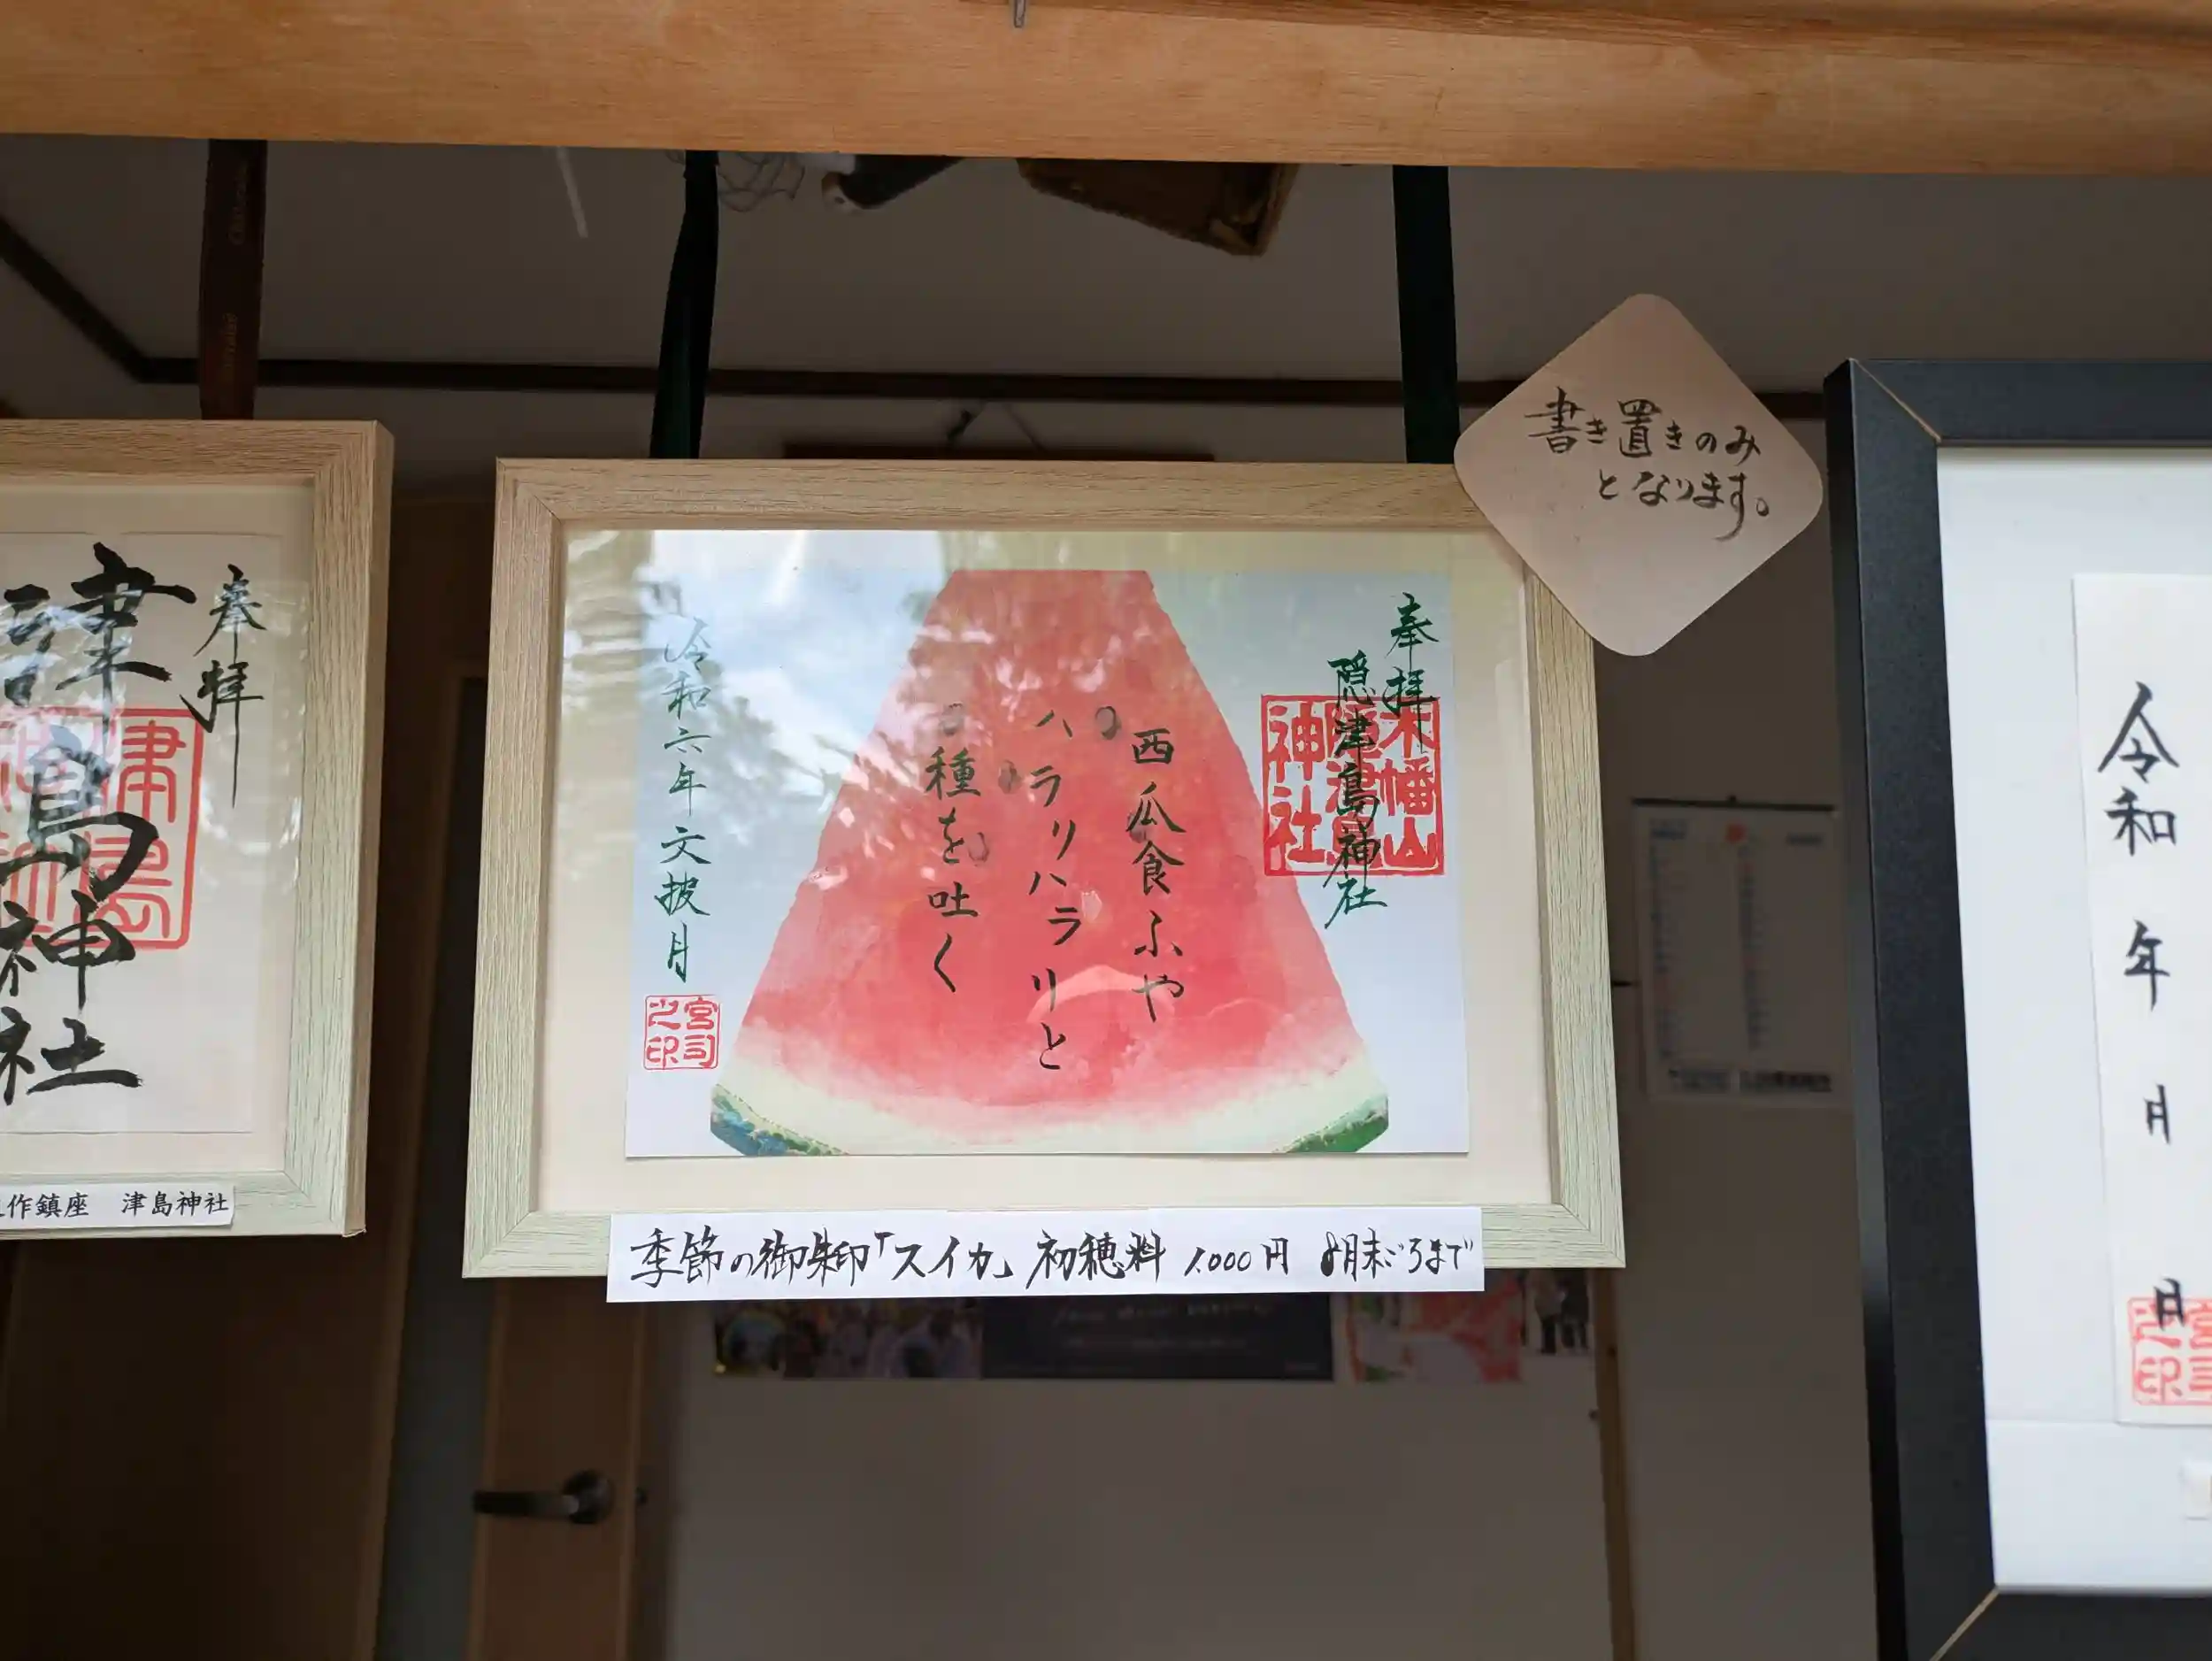 書き置きのみ
となります。
奉拝
隠津島神社
木幡山
隠津島
神社
西瓜食ふや
ハラリハラリと
種を吐く
令和六年文披月
宮司
之印
季節の御朱印「スイカ」 初穂料 1,000円 8月末ごろまで
奉拝
津島神社
作鎮座 津島神社
令和 年 月 日